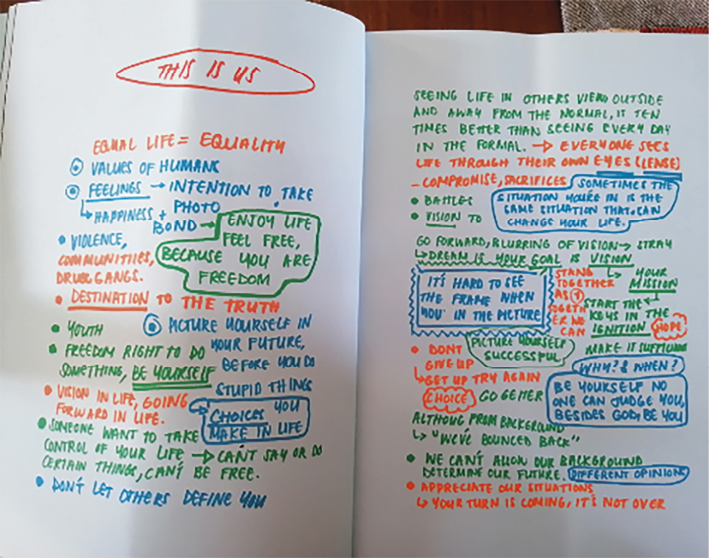 THIS IS US
EQUAL LIFE = EQUALITY
VALUES OF HUMANS
FEELINGS → INTENTION TO TAKE
↳ HAPPINESS + PHOTO
BOND → ENJOY LIFE
FEEL FREE,
BECAUSE YOU ARE
FREEDOM
• VIOLENCE,
COMMUNITIIES,
DRUGGANGS.
• DESTINATION TO THE TRUTH
• YOUTH
• FREEDOM RIGHT TO DO
SOMETHING, BE YOURSELF
PICTURE YOURSELF IN
YOUR FUTURE,
BEFORE YOU DO
STUPID THINGS
• VISION IN LIFE, GOING
FORWARD IN LIFE.
CHOICES YOU
MAKE IN LIFE
• SOMEONE WANT TO TAKE
CONTROL OF YOUR LIFE → CAN'T SAY OR DO
CERTAIN THINGS, CAN'T BE FREE.
• DON'T LET OTHERS DEFINE YOU
SEEING LIFE IN OTHERS VIEW OUTSIDE
AND AWAY FROM THE NORMAL, IT TEN
TIMES BETTER THAN SEEING EVERY DAY
IN THE FORMAL. → EVERYONE SEES
LIFE THROUGH THEIR OWN EYES (LENSE)
– COMPROMISE, SACRIFICES
SOMETIMES THE
SITUATION YOU'RE IN IS THE
SAME SITUATION THAT CAN
CHANGE YOUR LIFE.
• BATTLES
• VISION TO
GO FORWARD, BLURRING OF VISION → STRAY
↳ DREAM IS YOUR GOAL IS VISION
↳ YOUR
MISSION
IT'S HARD TO SEE
THE FRAME WHEN
YOU' IN THE PICTURE
STAND
TOGETHER
AS 1
TOGETH
ER WE
CAN
START THE
KEYS IN THE
IGNITION HOPE
MAKE IT
PICTURE YOURSELF
SUCCESSFUL
• DONT
GIVE UP
↳ GET UP TRY AGAIN
CHOICE GO
WHY? & WHEN?
BE YOURSELF NO
ONE CAN JUDGE YOU,
BESIDES GOD, BE YOU
ALTHOUG FROM BACKGROUND
↳ "WE'VE BOUNCED BACK"
• WE CAN'T ALLOW OUR BACKGROUND
DETERMINE OUR FUTURE. DIFFERENT OPINION
• APPRECIATE OUR SITUATIONS
↳ YOUR TURN IS COMING, IT'S NOT OVER